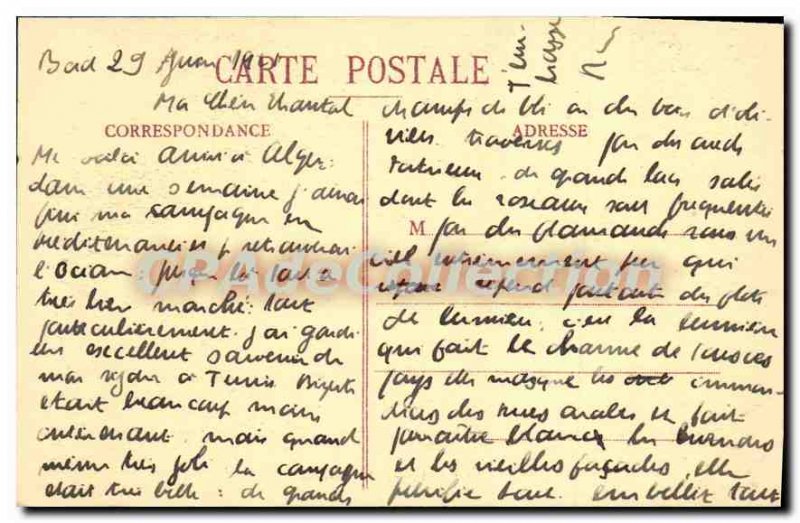 Bord 29 Juin
CARTE POSTALE
Ma chère Chantal
CORRESPONDANCE
Me voilà arrivé à Alger.
dans une semaine j'aurai
fini ma campagne en
méditerranée et retournerai
l'océan. jusqu'ici tout a
très bien marché. tout
particulièrement. j'ai gardé
un excellent souvenir de
mon séjour à Tunis Bizerte
était beaucoup moins
intéressant mais quand
même très joli la campagne
était très belle : de grands
champs de blé ou des bois d'oli-
ADRESSE
viers traversés par des oueds
de grands lacs salés
dont les roseaux sont fréquentés
M
par des flamands sous un
ciel infiniment pur qui
répand partout des flots
de lumière. c'est la lumière
qui fait le charme de tous ces
pays elle masque les immon-
dices des rues arabes et fait
paraître blancs les
et les vieilles façades, elle
purifie tout embellit tout
CPAdeCollection